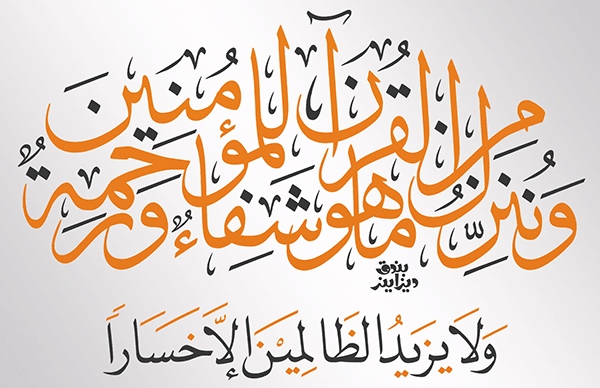 وَنُنَزِّلُ مِنَ القُرآن ما هو شِفَاءٌ ورَحمةٌ للمؤمنين
وَلَا يَزيدُ الظَالِمِيْنَ إلاَّ خَسَاراً